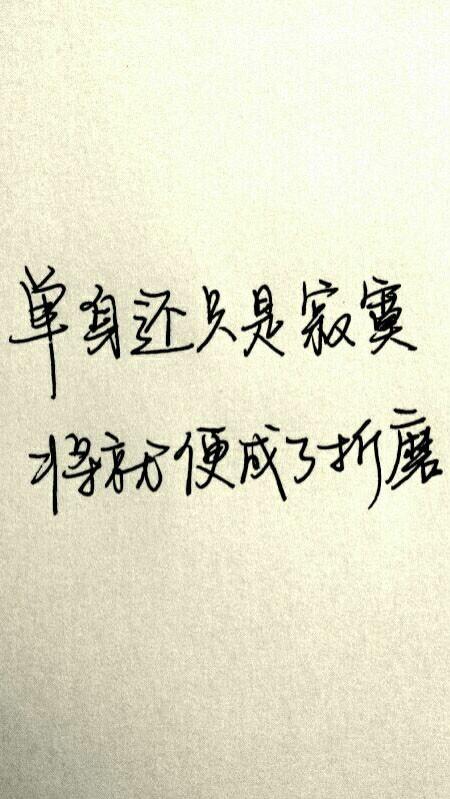 单身还只是寂寞
将就便成了折磨